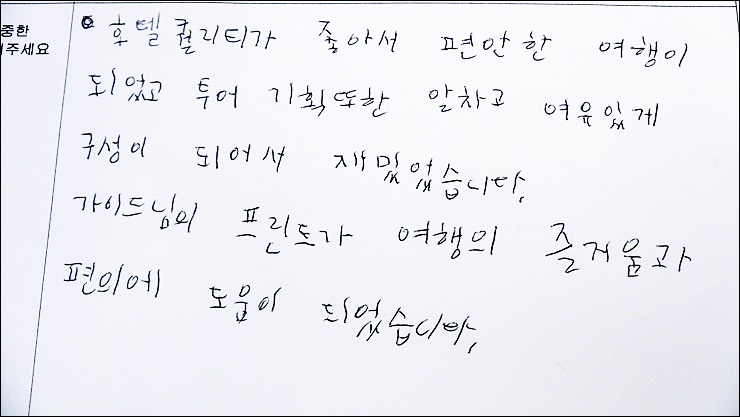 중한
주세요
호텔 퀄리티가 좋아서 편안한 여행이
되었고 투어 기획또한 알차고 여유있게
구성이 되어서 재밌었습니다.
가이드님의 프린트가 여행의 즐거움과
편의에 도움이 되었습니다.